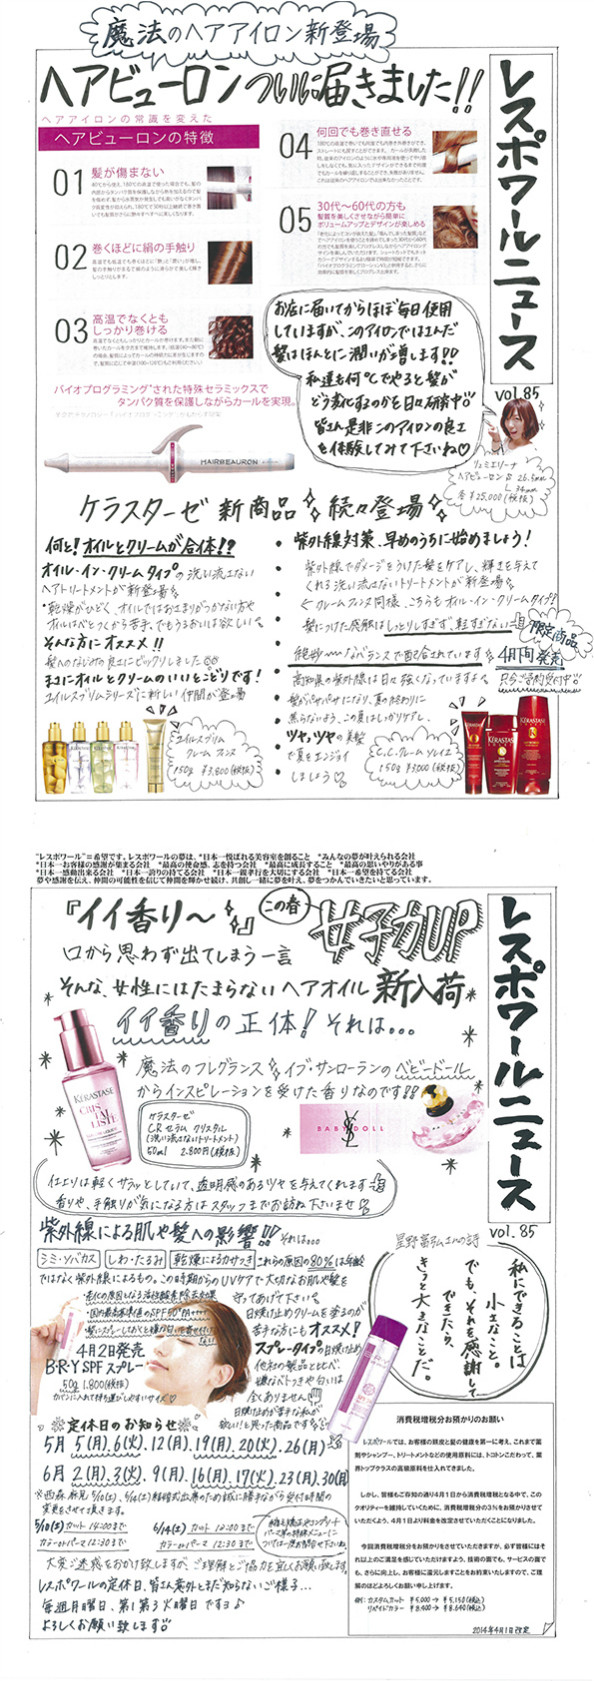 魔法のヘアアイロン新登場
ヘアビューロンついに届きました!!
レスポワールニュース
vol.85
ヘアアイロンの常識を変えた
ヘアビューロンの特徴
01 髪が傷まない
02 巻くほどに絹の手触り
03 高温でなくとも
しっかり巻ける
04 何回でも巻き直せる
05 30代〜60代の方も
髪質を美しくさせながら簡単に
ボリュームアップとデザインが楽しめる
バイオプログラミング®された特殊セラミックスで
タンパク質を保護しながらカールを実現。
HAIRBEAURON
お店に届いてからほぼ毎日使用
していますが、このアイロンではさんだ
髪はほんとに潤いが増します!!
私達も何℃でやると髪が
どう変化するのかを日々研究中
皆さん是非このアイロンの良さ
を体験してみて下さいね♡
リュミエリーナ
ヘアビューロン S 26.5mm
L 34mm
各 ¥25,000(税抜)
ケラスターゼ 新商品 続々登場
何と!オイルとクリームが合体!?
オイル・イン・クリームタイプの洗い流さない
ヘアトリートメントが新登場
・乾燥がひどく、オイルではおさまりがつかない方や
オイルはべとつくから苦手、でもうるおいは欲しい
そんな方にオススメ!!
髪へのなじみの良さにビックリしました
まさにオイルとクリームのいいとこどりです!
ユイルスブリムシリーズに新しい仲間が登場
ユイルスブリム
クレーム フィンヌ
150g ¥3,800(税抜)
・紫外線対策、早めのうちに始めましょう!
紫外線でダメージをうけた髪をケアし、輝きを与えて
くれる洗い流さないトリートメントが新登場
クレームフィンヌ同様、こちらもオイル・イン・クリームタイプ!
髪につけた感触はしっとりしすぎず、軽すぎない
絶妙〜なバランスで配合されています
限定商品
4月向発売
只今ご予約受付中
高知県の紫外線は日々強くなっていますよ
髪がパサパサになり、夏の終わりに
焦らないよう、この夏はしっかりケアし、
ツヤツヤの美髪
で夏をエンジョイ
しましょう♡
C.C.クレーム ソレイユ
150g ¥3,800(税抜)
"レスポワール"=希望です。レスポワールの夢は、*日本一悦ばれる美容室を創ること *みんなの夢が叶えられる会社
*日本一お客様の感謝が集まる会社 *最高の使命感、志を持つ会社 *最高に成長すること *最高の思いやりがある事
*日本一感動出来る会社 *日本一誇りの持てる会社 *日本一親孝行を大切にする会社 *日本一希望を持てる会社
夢や感謝を伝え、仲間の可能性を信じて仲間を輝かせ続け、共創し一緒に夢を叶え、夢をつかんでいきたいと思っています。
『イイ香り〜』
この春
女子力UP
口から思わず出てしまう一言
そんな、女性にはたまらないヘアオイル 新入荷
イイ香りの正体!それは...
レスポワールニュース
vol.85
魔法のフレグランス イブ・サンローランのベビードール
からインスピレーションを受けた香りなのです!!
KÉRASTASE
CRISTALLISTE
ケラスターゼ
CR セラム クリスタル
(洗い流さないトリートメント)
50ml 2,800円(税抜)
BABY DOLL
YSL
仕上りは軽くサラッとしていて、透明感のあるツヤを与えてくれます
香りや、手触りが気になる方はスタッフまでお訪ね下さいませ
紫外線による肌や髪への影響!! それは...
シミ・ソバカス しわ・たるみ 乾燥によるカサつき これらの原因の80%は年齢
ではなく紫外線によるもの。この時期からのUVケアで大切なお肌や髪を
守ってあげて下さい
・老化の原因となる活性酸素除去効果
・国の最高基準値のSPF50+PA++++
4月2日発売
B・R・Y SPF スプレー
50g 1,800(税抜)
日焼け止めクリームを塗るのが
苦手な方にもオススメ!
スプレータイプの日焼け止め
他社の製品と比べ、
嫌なベトつきや匂いは
全くありません
日焼け止めが苦手な私が
欲しい!と思った商品です
星野富弘さんの詩
私にできることは
小さなこと。
でも、それを感謝して
できたら、
きっと大きなことだ。
※定休日のお知らせ※
5月 5(月).6(火).12(月).19(月).20(火).26(月)
6月 2(月).3(火).9(月).16(月).17(火).23(月).30(月)
変更をさせて頂きます。
5/10(土) カット 14:00まで
カラーorパーマ 12:30まで
6/14(土) カット 12:00まで
カラーorパーマ 12:30まで
大変ご迷惑をおかけ致しますが、ご理解とご協力を宜しくお願い致します。
レスポワールの定休日、皆さん案外とまだ知らないご様子...
毎週月曜日、第1第3火曜日ですヨ♪
よろしくお願い致します
消費税増税分お預かりのお願い
レスポワールでは、お客様の頭皮と髪の健康を第一に考え、これまで薬
剤やシャンプー、トリートメントなどの使用原料には、トコトンこだわって、業
界トップクラスの高級原料を仕入れてきました。
しかし、皆様もご存知の通り4月1日から消費税増税となる中で、この
クオリティーを維持していくために、消費税増税分の3%をお預かりさせて
いただくよう、4月1日より料金を改定させていただくことになりました。
今回消費税増税分をお預かりをさせていただきますが、必ず皆様にはそ
れ以上のご満足を感じていただけますよう、技術の面でも、サービスの面で
も、さらに向上し、お客様に還元しますことをお約束いたしますので、ご理
解のほどよろしくお願い申し上げます。
例:カスタムカット ¥5,000 → ¥5,150(税込)
リタッチカラー ¥8,400 → ¥8,640(税込)
2014年4月1日改定